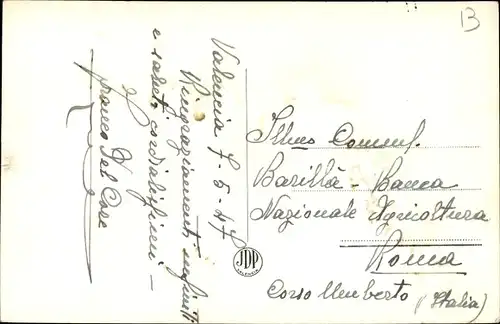 B
Valencia 7-5-47
Ringraziamenti infiniti
e saluti cordialissimi -
Franco Del Core
Illmo Commen.
Barillà - Banca
Nazionale Agricoltura
Roma
Corso Umberto (Italia)
JDP
VALENCIA